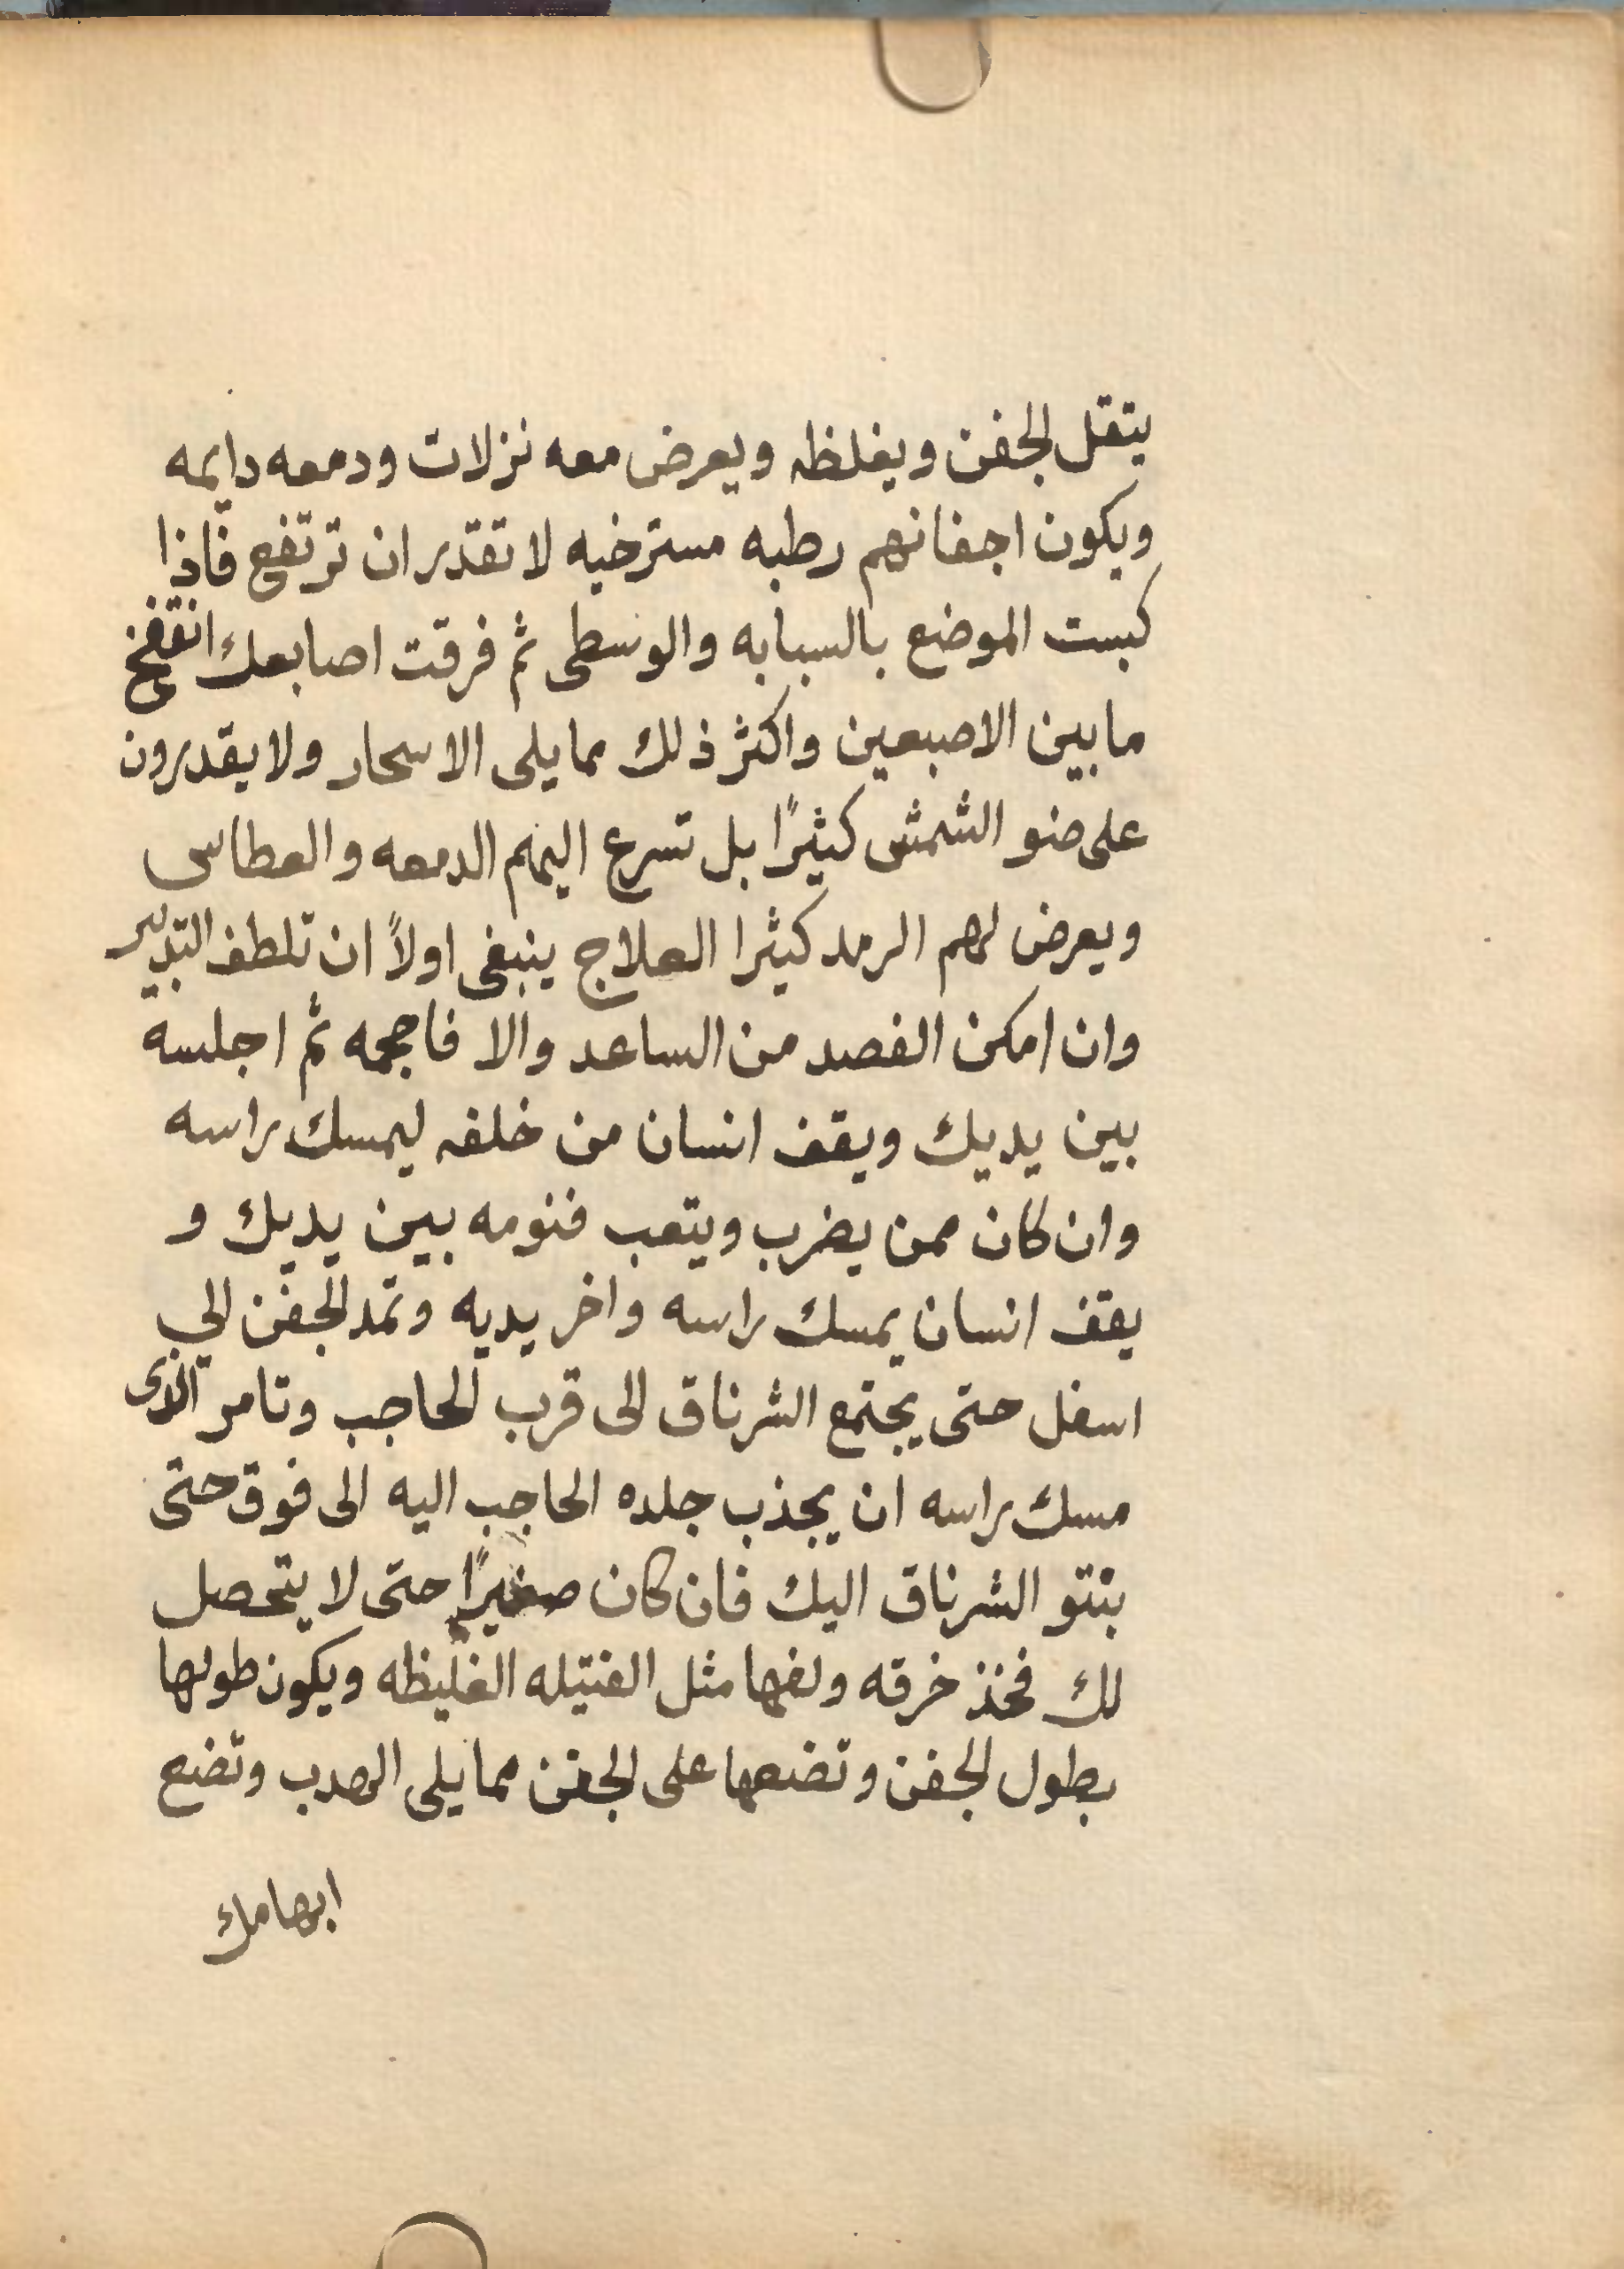 يتقل الجفن ويغلظه ويعرض معه نزلات ودمعه دايمه
ويكون اجفانهم رطبه مسترخيه لا تقدر ان ترتفع فاذا
كبست الموضع بالسبابه والوسطى ثم فرقت اصابعك انتفخ
ما بين الاصبعين واكثر ذلك مما يلى الاسحار ولا يقدرون
على ضو الشمش كثيرًا بل تسرع اليهم الدمعه والعطاس
ويعرض لهم الرمد كثيرا العلاج ينبغى اولاً ان تلطف التدبير
وان امكن الفصد من الساعد والا فاحجمه ثم اجلسه
بين يديك ويقف انسان من خلفه ليمسك راسه
وان كان ممن يضرب ويتعب فنومه بين يديك و
يقف انسان يمسك راسه واخر يديه وتمد الجفن الي
اسفل حتى يجتمع الشرناق الى قرب الحاجب وتامر الذى
مسك راسه ان يجذب جلده الحاجب اليه الى فوق حتى
ينتو الشرناق اليك فان كان صغيرًا حتى لا يتحصل
لك فخذ خرقه ولفها مثل الفتيله الغليظه ويكون طولها
بطول الجفن وتضعها على الجفن مما يلى الهدب وتضع
ابهامك